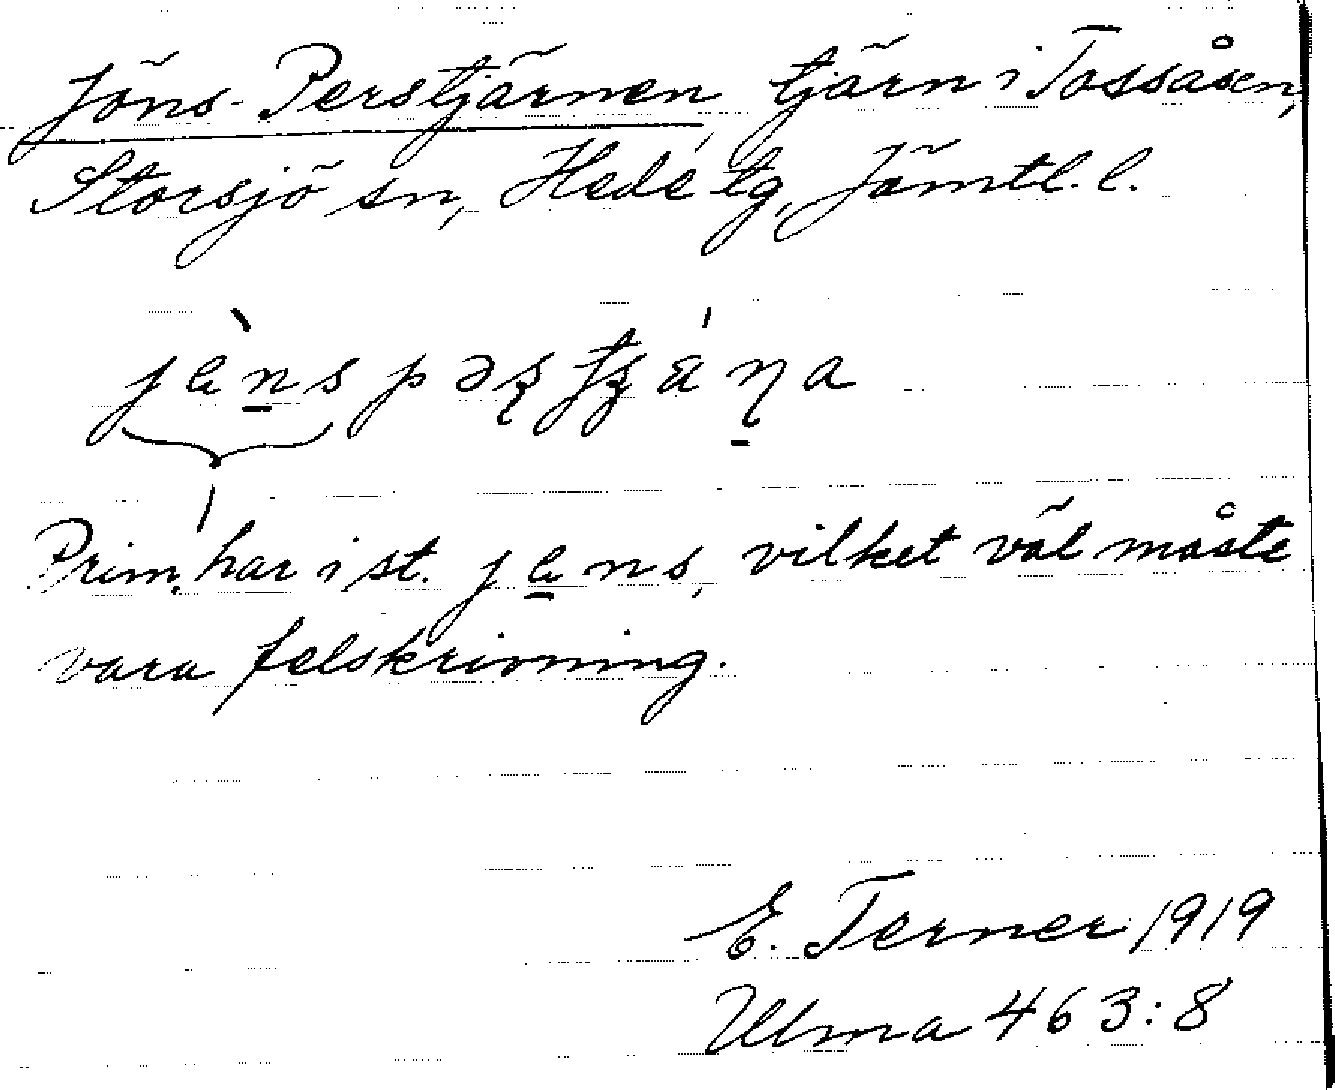 Jöns-Perstjärnen, tjärn i Tossåsen,
Storsjö sn, Hede tg, Jämtl. l.
Prim. har i st. jens, vilket väl måste
vara felskrivning.
E. Terner 1919
Ulma 463:8